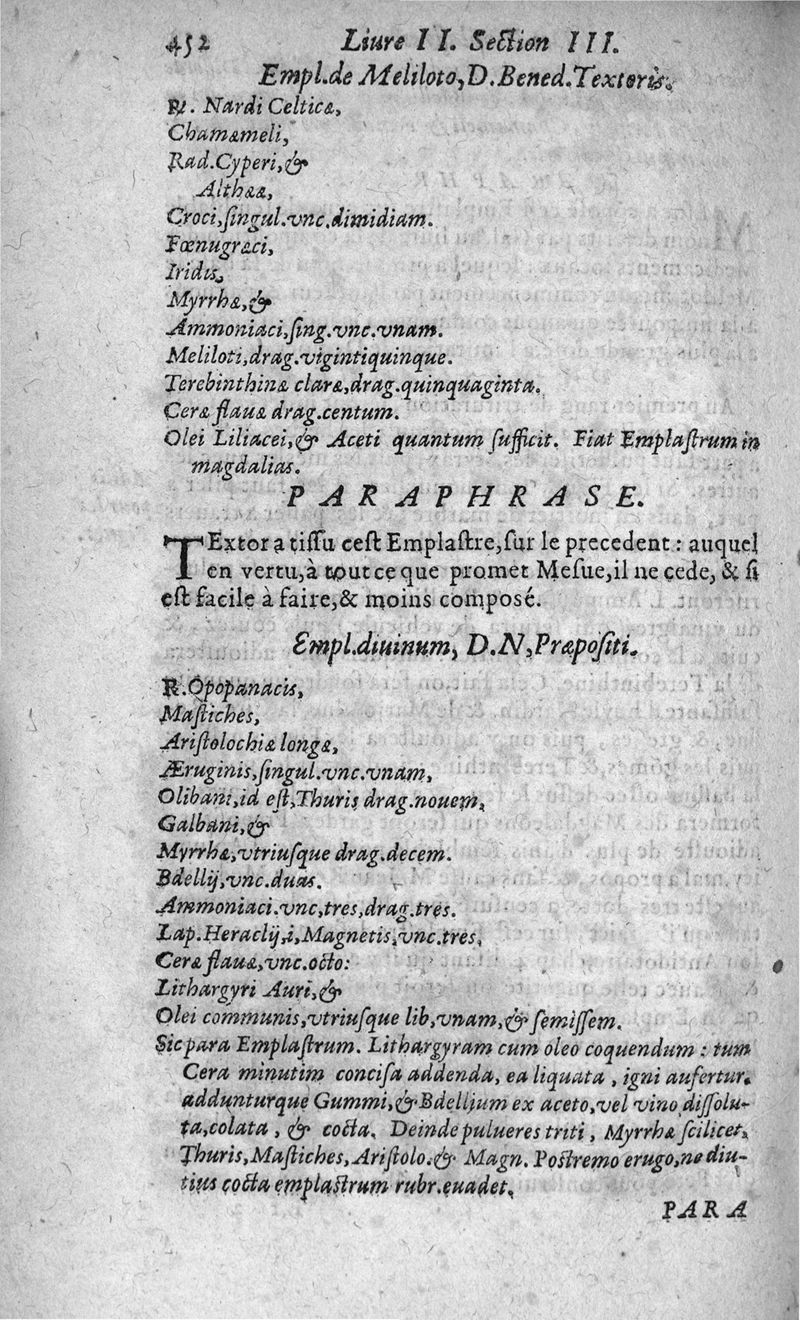 452 Liure II. Section III.
Empl.de Meliloto, D. Bened. Textoris.
℞. Nardi Celticæ,
Chamæmeli,
Rad.Cyperi,&
Altheæ,
Croci,ſingul.vnc.dimidiam.
Fœnugræci,
Iridis,
Myrrhæ,&
Ammoniaci,ſing.vnc.vnam.
Meliloti,drag.vigintiquinque.
Terebinthinæ claræ,drag.quinquaginta.
Ceræ flauæ drag.centum.
Olei Liliacei,& Aceti quantum ſufficit. Fiat Emplaſtrum in
magdalias.
PARAPHRASE.
TExtor a tiſſu ceſt Emplaſtre,ſur le precedent : auquel
en vertu,à tout ce que promet Meſue,il ne cede, & ſi
eſt facile à faire,& moins compoſé.
Empl.diuinum, D.N,Præpoſiti.
℞.Opopanacis,
Maſtiches,
Ariſtolochiæ longæ,
Æruginis,ſingul.vnc.vnam,
Olibani,id eſt,Thuris drag.nouem,
Galbani,&
Myrrhæ,vtriuſque drag.decem.
Bdellij,vnc.duas.
Ammoniaci.vnc,tres,drag.tres.
Lap.Heraclij,i,Magnetis,vnc.tres,
Ceræ flauæ,vnc.octo:
Lithargyri Auri,&
Olei communis,vtriuſque lib,vnam,& ſemiſſem.
Sic para Emplaſtrum. Lithargyram cum oleo coquendum : tum
Cera minutim conciſa addenda, ea liquata , igni aufertur.
addunturque Gummi,& Bdellium ex aceto,vel vino diſſolu-
ta,colata , & cocta. Deinde pulueres triti , Myrrhæ ſcilicet,
Thuris,Maſtiches,Ariſtolo.& Magn. Poſtremo erugo,ne diu-
tius cocta emplaſtrum rubr.euadet.
PARA